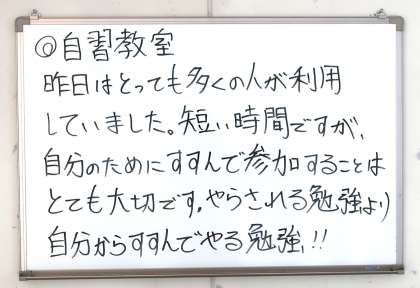 ◎自習教室
昨日はとっても多くの人が利用
していました。短い時間ですが、
自分のためにすすんで参加することは
とても大切です。やらされる勉強より
自分からすすんでやる勉強!!